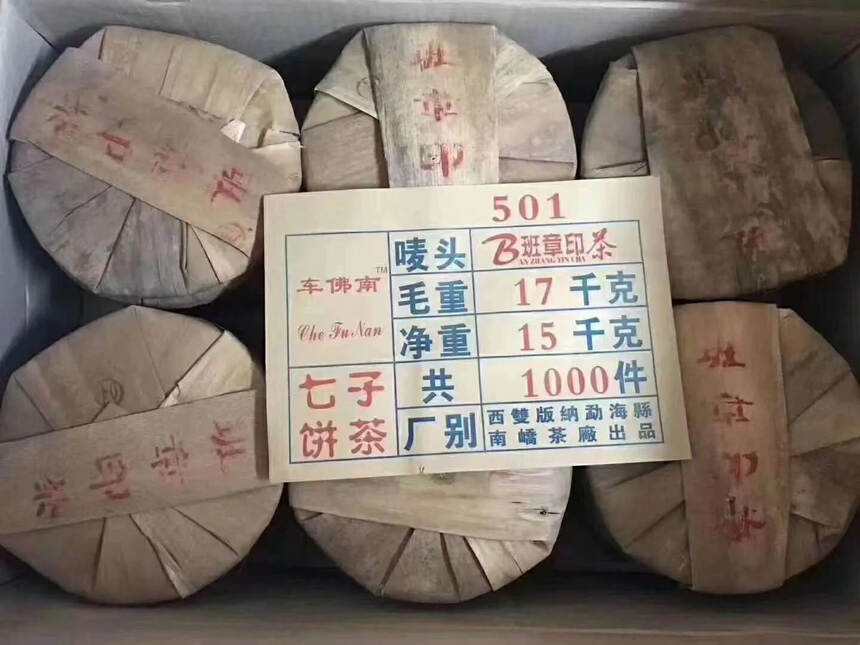 班章印茶
班章印
501
车佛南™
Che Fu Nan
唛头
B班章印茶
BAN ZHANG YIN CHA
毛重
17 千克
净重
15 千克
七子
饼茶
共
1000件
厂别
西雙版纳勐海縣
南嶠茶廠出品
班章印茶
班章印茶